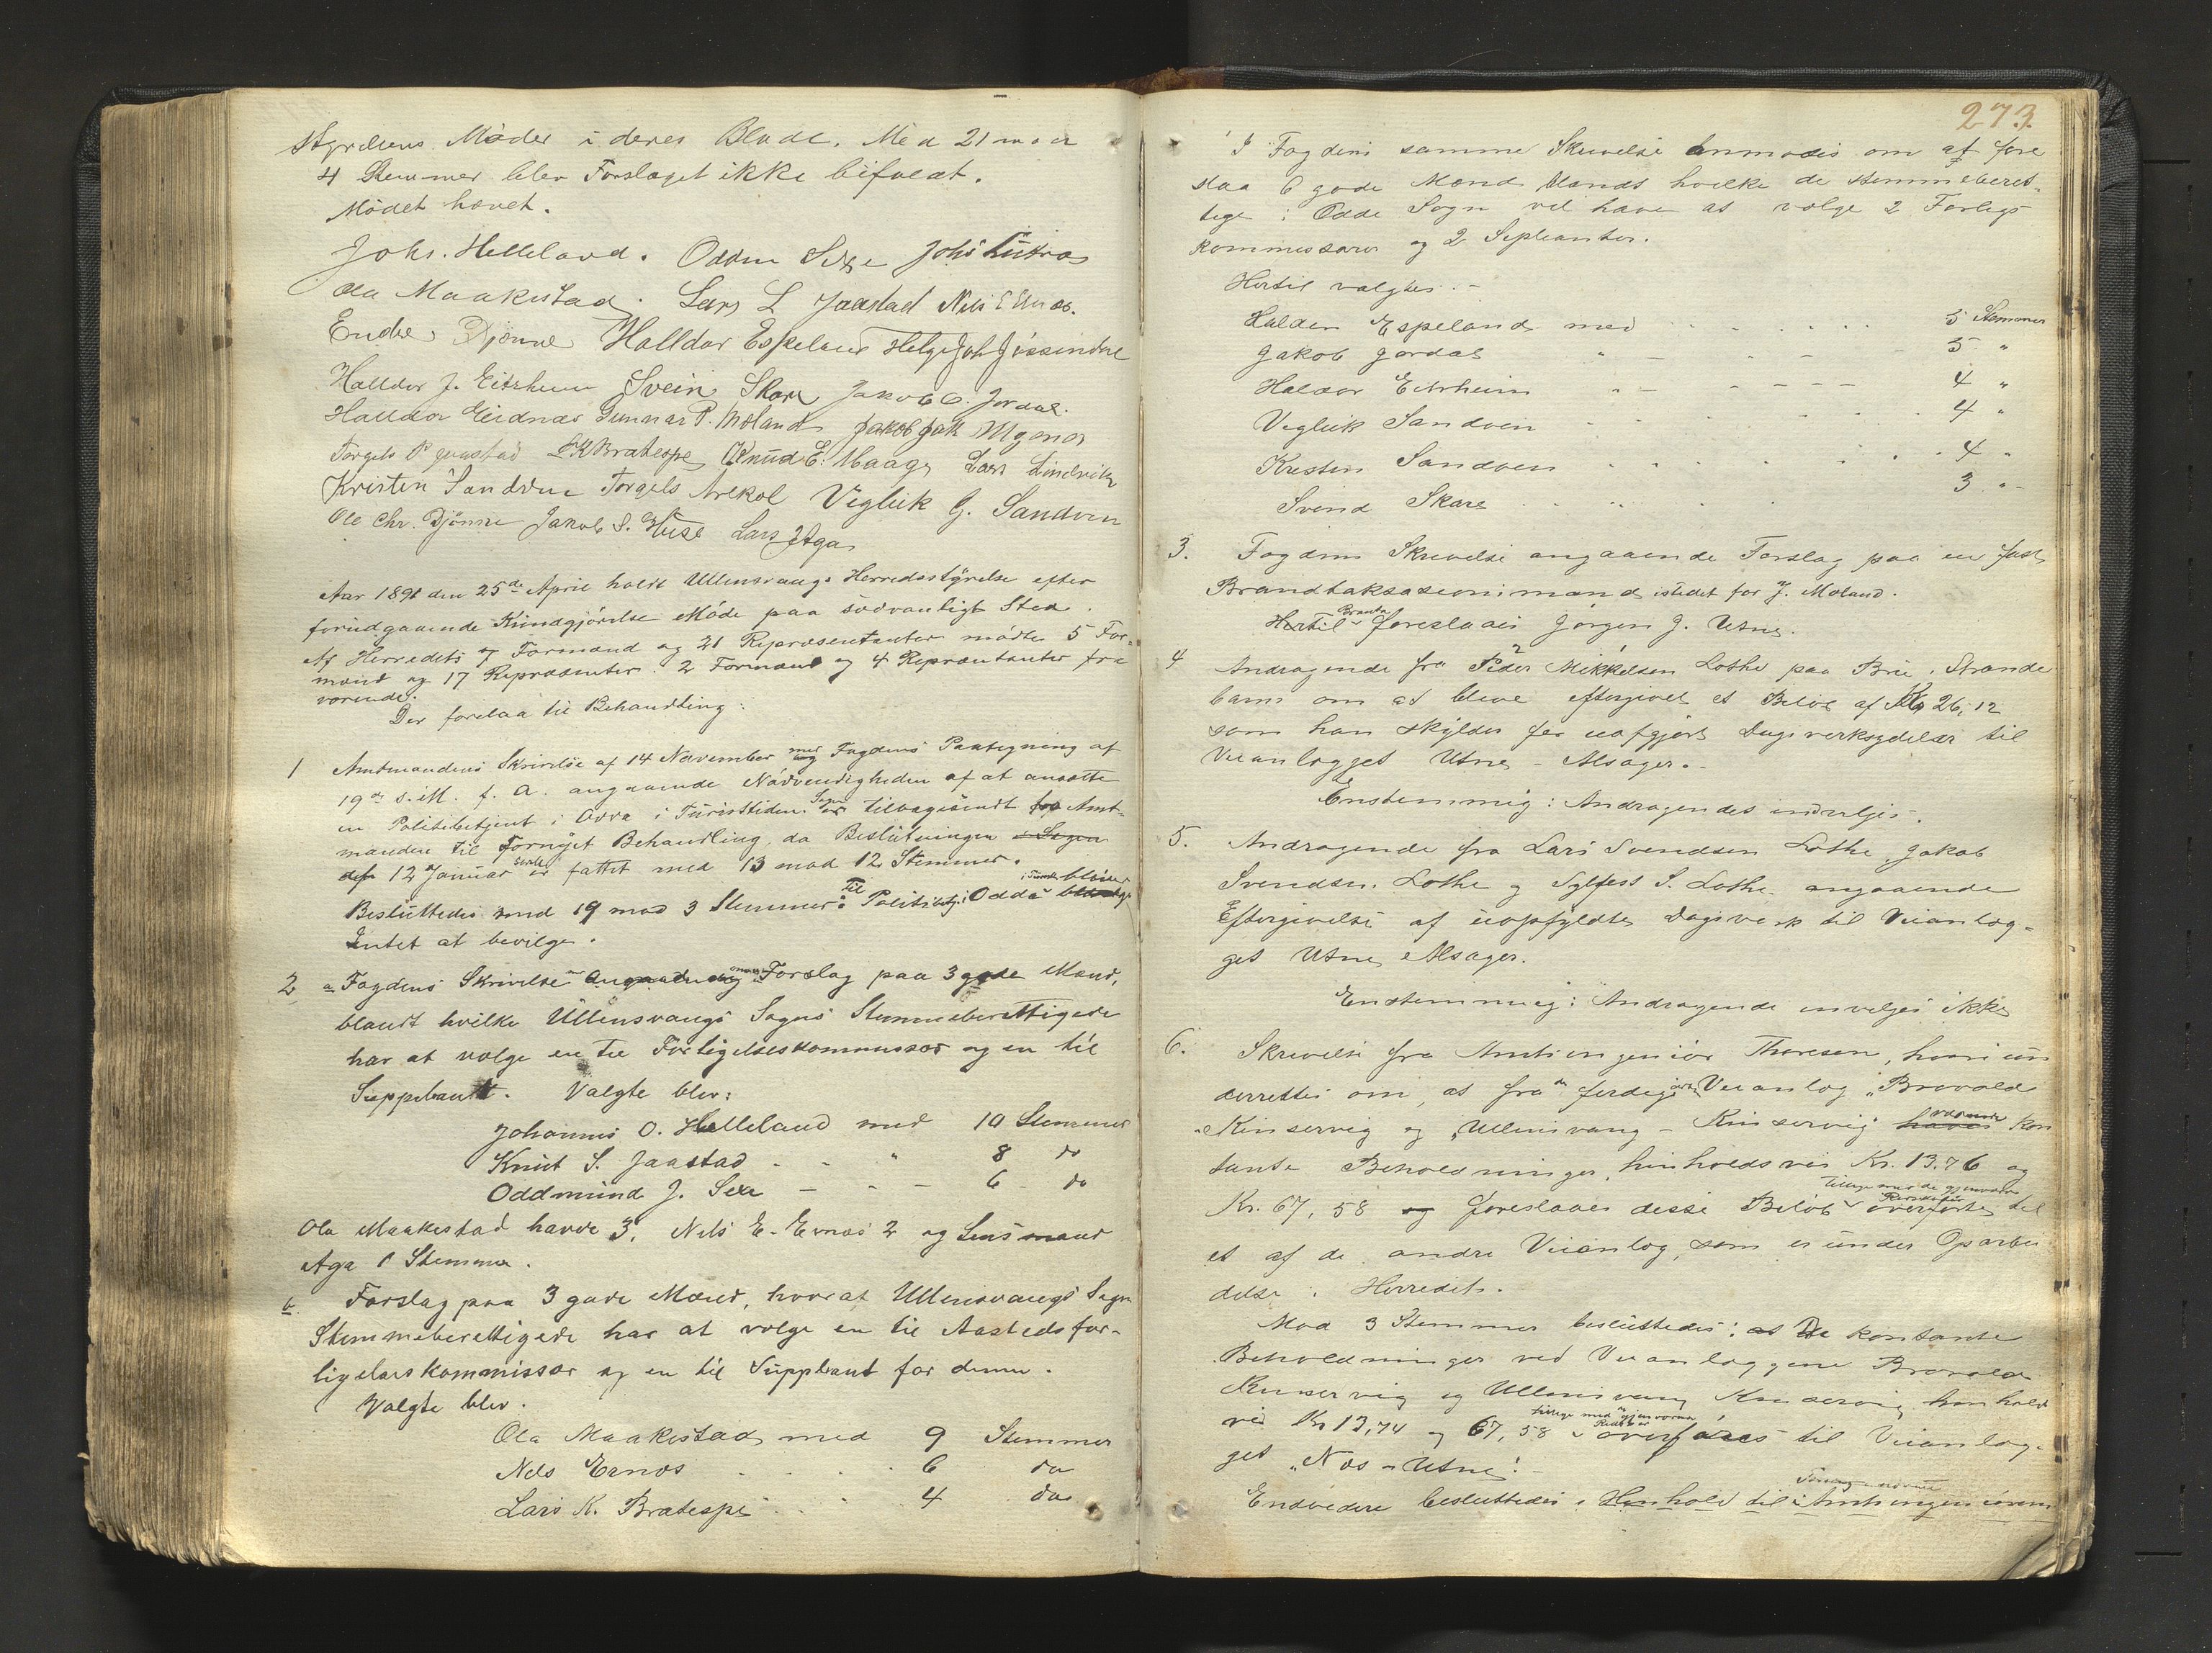 Styrelsens Møder i deres Blade. Med 21 mod
4 Stemmer blev Forslaget ikke bifaldt.
Mødet hævet.
Johs. Helleland. Oddm Sexe Johs Lutro
Ola Maakestad. Lars L Jaastad Nils E Ernæs.
Endre Djønne Halldor Espeland Helge Joh Jøssendal
Halldor J. Eitrheim Svein Skare Jakob O. Jordal.
Halldor Eidnæs Gunnar P. Moland Jakob Jak Mganør
Torgels P Jaastad LKBratespe Knud E. Maage Lars Lindvik
Kristen Sandven Torgels Arekol Vegleik G. Sandven
Ole Chr. Djønne Jakob S. Huse Lars J Aga
Aar 1891 den 25de April holdt Ullensvangs Herredsstyrelse efter
forudgaaende Kundgjørelse Møde paa sædvanligt Sted.
Af Herredets 7 Formænd og 21 Repræsentanter mødte 5 For-
mænd og 17 Repræsenter. 2 Formænd og 4 Repræntanter fra
værende.
Der forelaa til Behandling:
1 Amtmandens Skrivelse af 14 November med Fogdens Paategning af
19de s. M. f. A. angaaende Nødvendigheden af at ansætte
en Politibetjent i Odda i Turisttiden. Sagen er tilbagesendt fra Amt-
manden til fornyet Behandling, da Beslutningen i Sagen
den 12 Januar er fattet med 13 mod 12 Stemmer.
Besluttedes med 19 mod 3 Stemmer: Til Politibetj. i Odda i Turistt. blever
Intet at bevilge.
2 a Fogdens Skrivelse angaaende Forslag paa 3 gode Mænd,
blandt hvilke Ullensvangs Sogns Stemmeberettigede
har at vælge en til Forligelseskommissær og en til
Suppleant. Valgte blev:
Johannes O. Helleland med 10 Stemmer
Knut S. Jaastad - - " 8 do
Oddmund J. Sexe - - - 6 do
Ola Maakestad havde 3, Nils E. Ernæs 2 og Lensmand
Aga 1 Stemme.
b. Forslag paa 3 gode Mænd, hvoraf Ullensvangs Sogns
Stemmeberettigede har at vælge en til Aastedsfor-
ligelseskommissær og en til Suppleant for denne.
Valgte blev.
Ola Maakestad med 9 Stemmer
Nils Ernæs . . . . 6 do
Lars K. Bratespe . . . 4 do
273.
I Fogdens samme Skrivelse anmodes om at fore
slaa 6 gode Mænd blandt hvilke de stemmeberet-
tige i Odde Sogn vil have at vælge 2 Forligs
kommissærer og 2 Supleanter.
Hertil valgtes: -
Haldor Espeland med . . . . . . . 5 Stemmer
Jakob Jordal " - - - - 5 "
Haldor Eitrheim " - - - - - 4 "
Vegleik Sandven . . . . . 4 "
Kristen Sandven . . . . . . . 4 "
Svend Skare . . . . 3 "
3. Fogdens Skrivelse angaaende Forslag paa en fast
Brandtaksasionsmand istedet for J. Moland.
Hertil foreslaaes Jørgen J. Utne.
4 Andragende fra Peder Mikkelsen Lothe paa Brue, Strande
barm om at bleve eftergivet et Beløb af Kr 26,12
som han skylder for uafgjort Dagsverksydelser til
Veianlægget Utne - Alsager.
Enstemmig: Andragendes indvilges.
5. Andragende fra Lars Svendsen Lothe, Jakob
Svendsen Lothe og Sylfest S. Lothe angaaende
Eftergivelse af uopfyldte Dagsverk til Veianlæg-
get Utne Alsager.
Enstemmig: Andragende invelges ikke
6. Skrivelse fra Amtsingeniør Thoresen, hvori un
derrettes om, at fra de ferdigjorte Veianlæg "Brovold
Kinservig og "Ullensvang - Kinservig" haves kon
tante Beholdninger, hinholdsvis Kr. 13,76 og
Kr. 67,58 og foreslaaes disse Beløb tillige med de gjenværende Redskaber overførte til
et af de andre Veianlæg, som er under Oparbei
delse i Herredet.
Mod 3 Stemmer besluttedes: at De kontante
Beholdninger ved Veianlæggene Brovold
Kinservig og Ullensvang Kinservig henholds
vis Kr 13,74 og 67,58 tillige med de gjenværende Redskaber overføres til Veianlæg-
get "Næs - Utne".
Endvidere besluttedes i Henhold til Amtsingeniørens